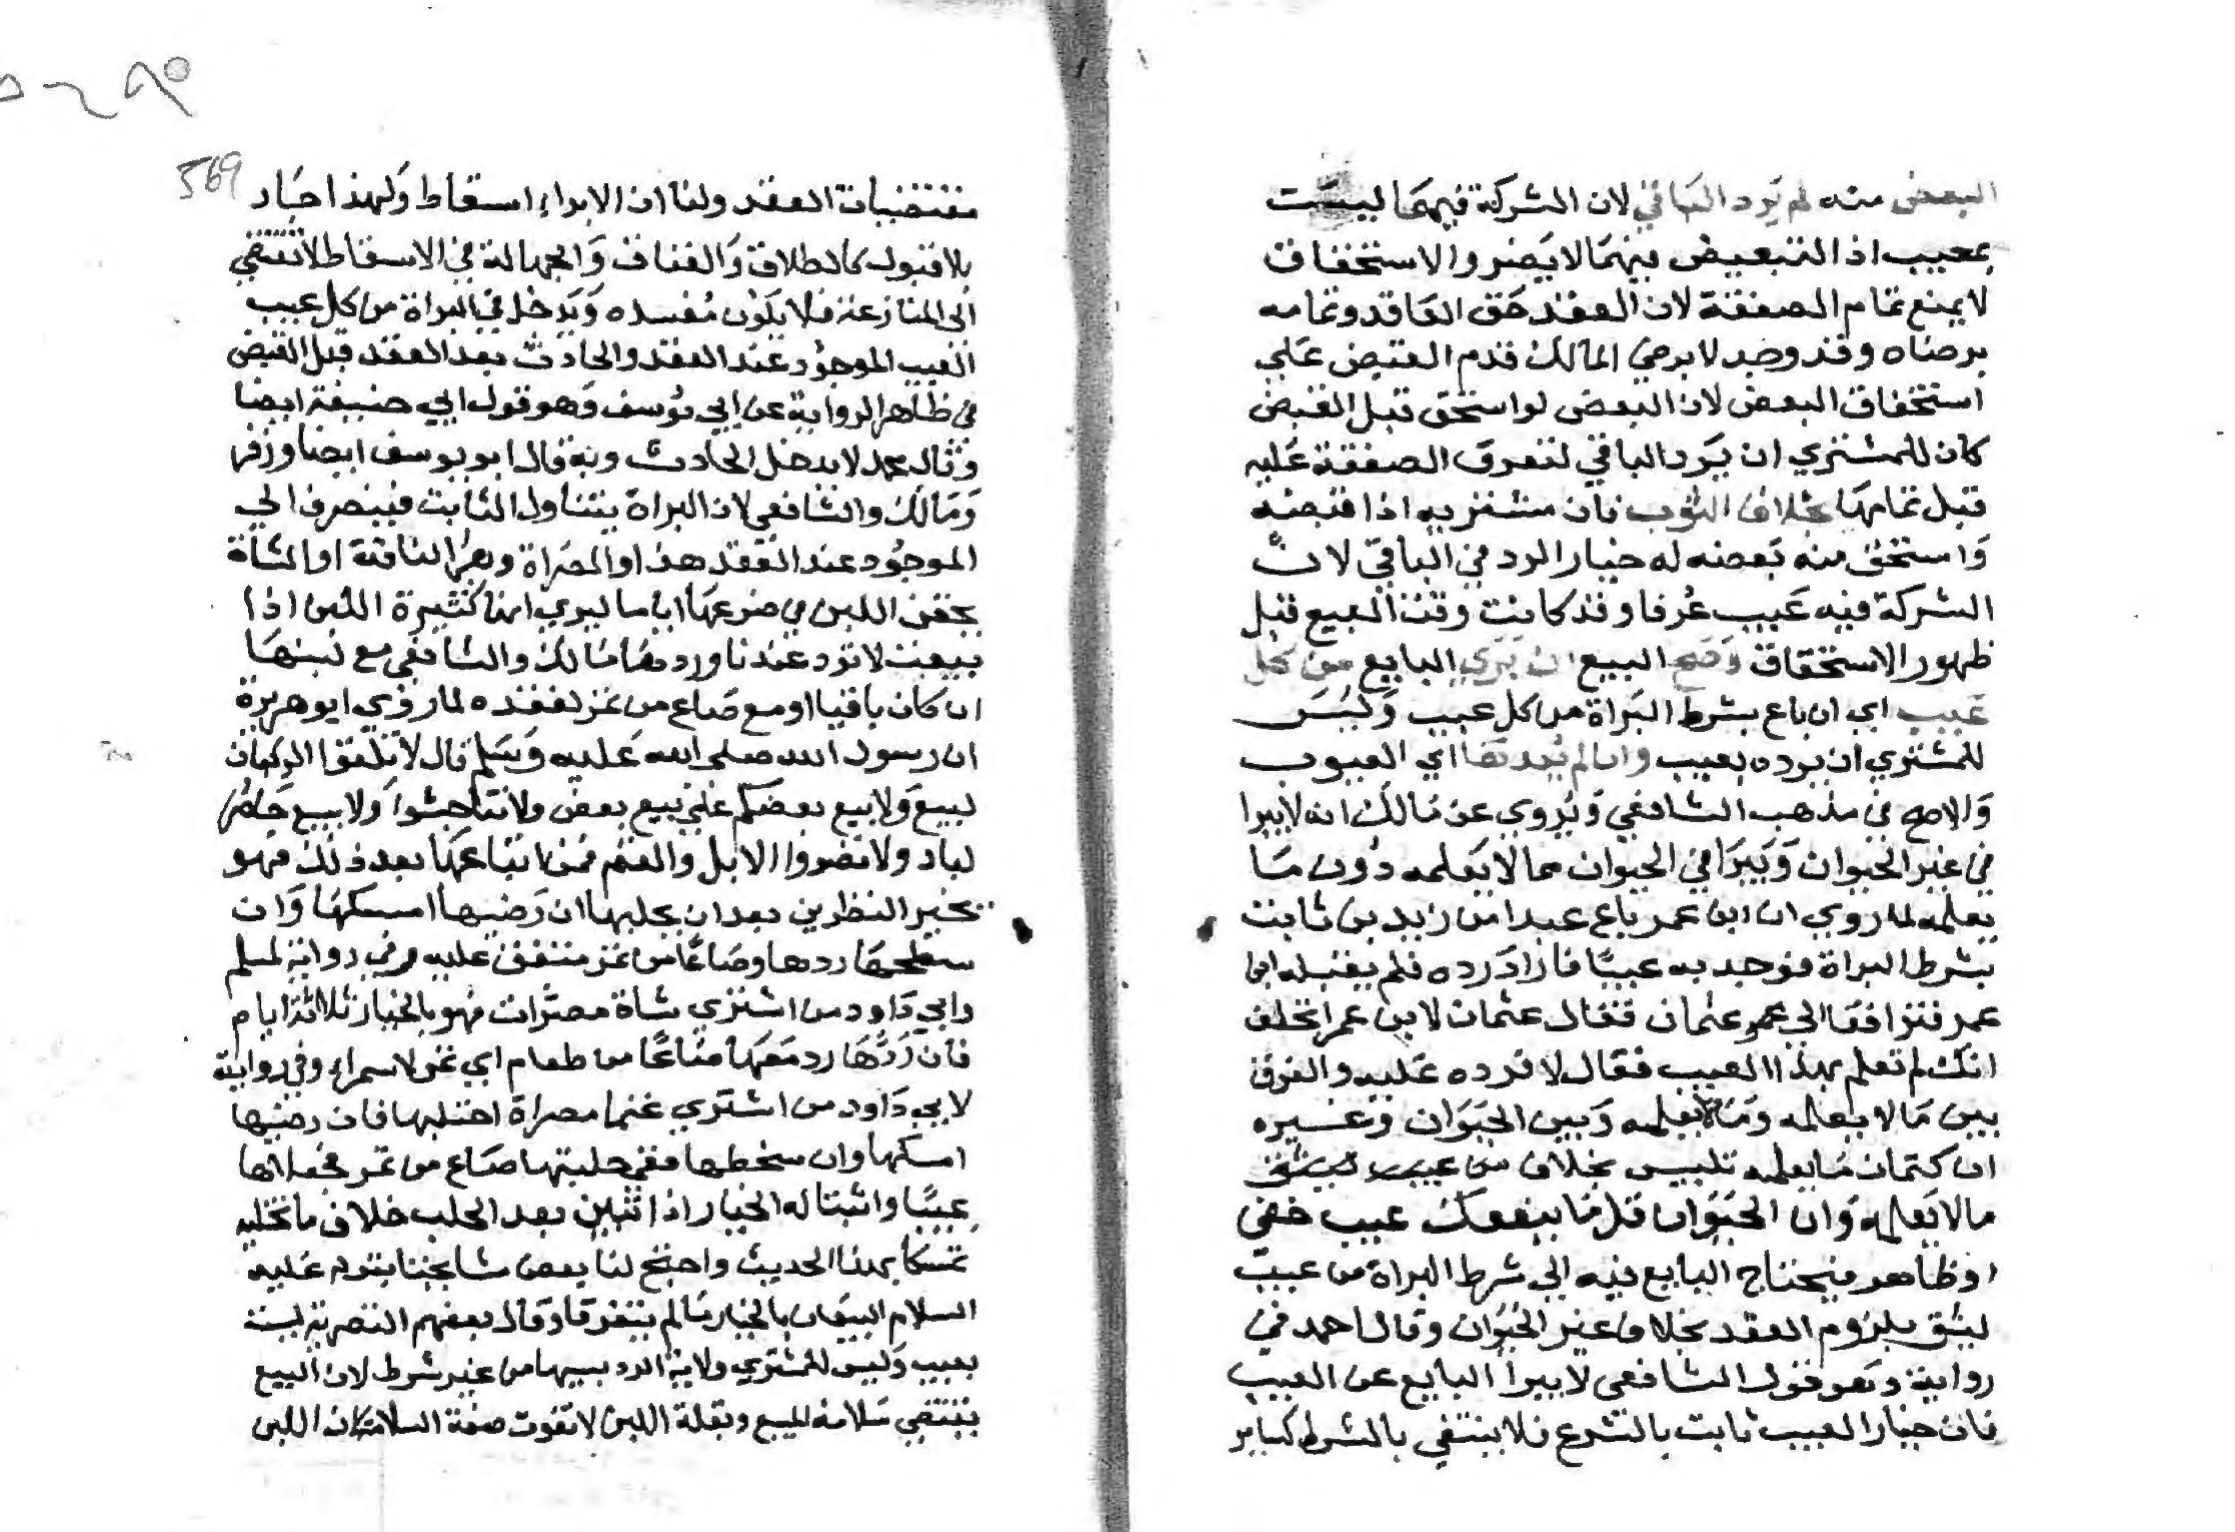 البعض منه لم يرد الباقي لان الشركة فيهما ليست
بعيب اذ التبعيض فيهما لا يضر والاستحقاق
لا يمنع تمام الصفقة لان العقد حق العاقد وتمامه
برضاه وقد وجد لا برضي المالك قدم القبض علي
استحقاق البعض لان البعض لو استحق قبل القبض
كان للمشتري ان يرد الباقي لتفرق الصفقة عليه
قبل تمامها بخلاف الثوب فان مشتريه اذا قبضه
واستحق منه بعضه له خيار الرد في الباقي لان
الشركة فيه عيب عرفا وقد كانت وقت البيع قبل
ظهور الاستحقاق وصح البيع ان بري البايع من كل
عيب اي ان باع بشرط البراة من كل عيب وليس
للمشتري ان يرده بعيب وان لم يعدها اي العيوب
والاصح في مذهب الشافعي ويروي عن مالك انه لا يبرا
في غير الحيوان ويبرا في الحيوان مما لا يعلمه دون ما
يعلمه لما روي ان ابن عمر باع عبدا من زيد بن ثابت
بشرط البراة فوجد به عيبا فاراد رده فلم يقبله ابن
عمر فترافعا الي عثمان فقال عثمان لابن عمر اتحلف
انك لم تعلم بهذا العيب فقال لا فرده عليه والفرق
بين ما لا يعلمه وما يعلمه وبين الحيوان وغيره
ان كتمان ما يعلمه تلبيس بخلاف
ما لا يعلمه وان الحيوان قل ما ينفك عيب خفي
او ظاهر فيحتاج البايع فيه الي شرط البراة من عيب
ليثق بلزوم العقد بخلاف غير الحيوان وقال احمد في
رواية وهو قول الشافعي لا يبرا البايع عن العيب
فان خيار العيب ثابت بالشرع فلا ينتفي بالشرط كساير
569
مقتضيات العقد ولنا ان الابراء اسقاط ولهذا جاز
بلا قبول كالطلاق والعتاق والجهالة في الاسقاط لا تفضي
الي المنازعة فلا يكون مفسده ويدخل في البراة من كل عيب
العيب الموجود عند العقد والحادث بعد العقد قبل القبض
في ظاهر الرواية عن ابي يوسف وهو قول ابي حنيفة ايضا
وقال محمد لا يدخل الحادث وبه قال ابو يوسف ايضا وزفر
ومالك والشافعي لان البراة يتناول الثابت فينصرف الي
الموجود عند العقد هذا والمصراة وهي الناقة او الشاة
يحقن اللبن في ضرعها اياما ليري انها كثيرة اللبن اذا
بيعت لا ترد عندنا وردها مالك والشافعي مع لبنها
ان كان باقيا او مع صاع من تمر لفقده لما روي ابو هريرة
ان رسول الله صلى الله عليه وسلم قال لا تلقوا الركبان
لبيع ولا يبيع بعضكم علي بيع بعض ولا تناجشوا ولا يبيع حاضر
لباد ولا تصروا الابل والغنم فمن ابتاعها بعد ذلك فهو
بخير النظرين بعد ان يحلبها ان رضيها امسكها وان
سخطها ردها وصاعا من تمر متفق عليه وفي رواية لمسلم
وابي داود من اشتري شاة مصرات فهو بالخيار ثلاثة ايام
فان ردها رد معها صاعا من طعام اي تمر لا سمراء وفي رواية
لابي داود من اشتري غنما مصراة احتلبها فان رضيها
امسكها وان سخطها ففي حلبتها صاع من تمر فجعلاها
عيبا واثبتا له الخيار اذا تبين بعد الحلب خلاف ما تخليه
تمسكا بهذا الحديث واحتج لنا بعض مشايخنا بقوله عليه
السلام البيعان بالخيار ما لم يتفرقا وقال بعضهم التصرية ليست
بعيب وليس للمشتري ولاية الرد بسببها من غير شرط لان البيع
يقتضي سلامة المبيع وبقلة اللبن لا تفوت صفة السلامة لان اللبن